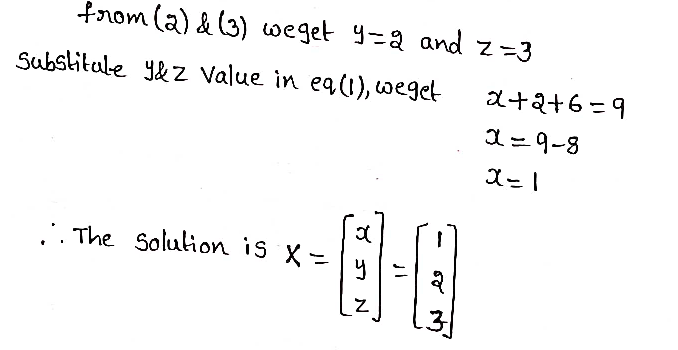 from (2) & (3) weget y=2 and z=3
Substitute y&z Value in eq(1), weget x+2+6=9
x=9-8
x=1
∴ The Solution is X = [x y z] = [1 2 3]